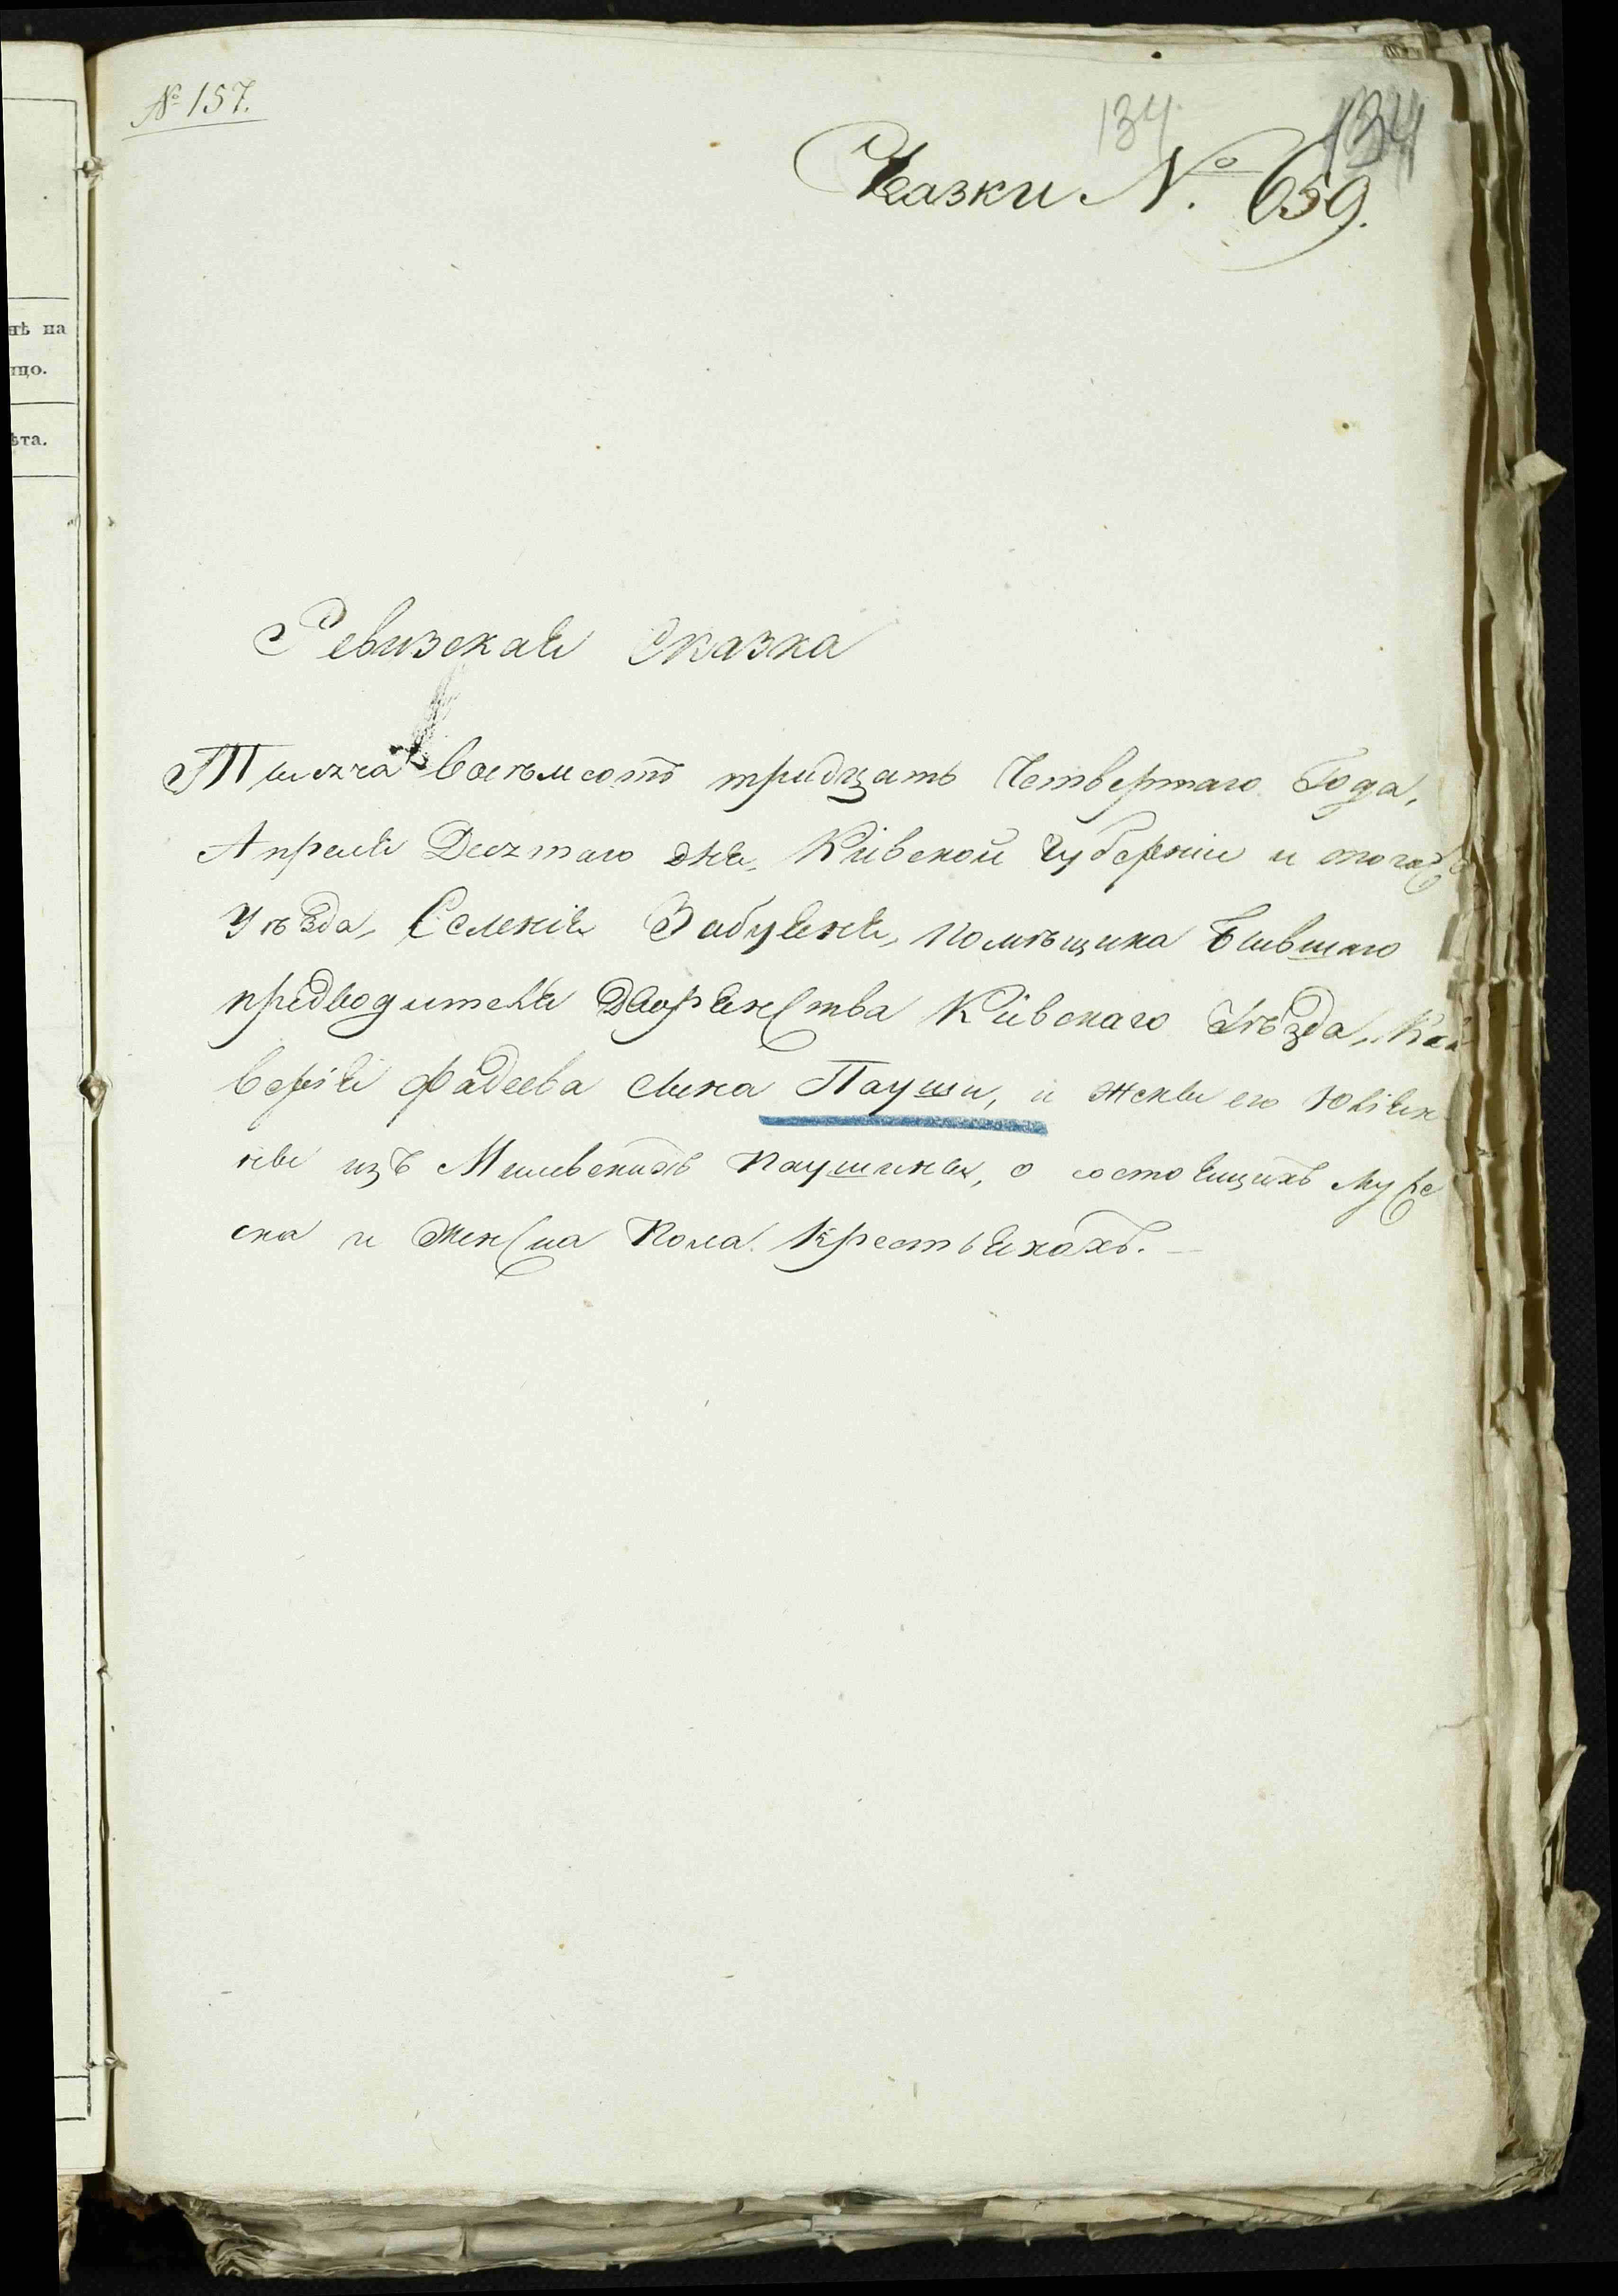 № 157.
134
134
Сказки №. 659.
нѣ на
цо.
ѣта.
Ревизская Сказка
Тысяча восѣмсотъ тридцать Четвертаго Года,
Апреля Десятаго дня, Кіевской Губерніи и тогожъ
Уѣзда, Селенія Забуяня, помѣщика Бывшаго
предводителя Дворянства Кіевскаго Уѣзда,
верія Фадеева сына Пауши, и жены его Юліян
ны изъ Паушиныи, о состоящихъ муже
ска и женска пола Крестьянахъ.